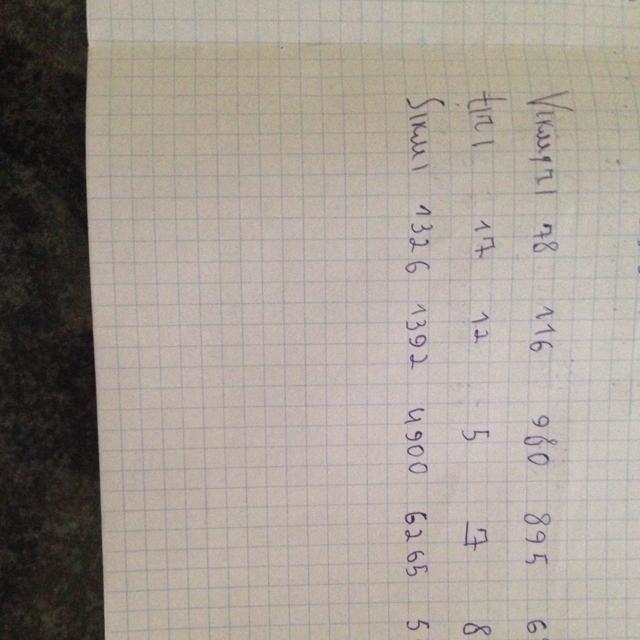 78 116 980 895 6
17 12 5 7 8
1326 1392 4900 6265 5